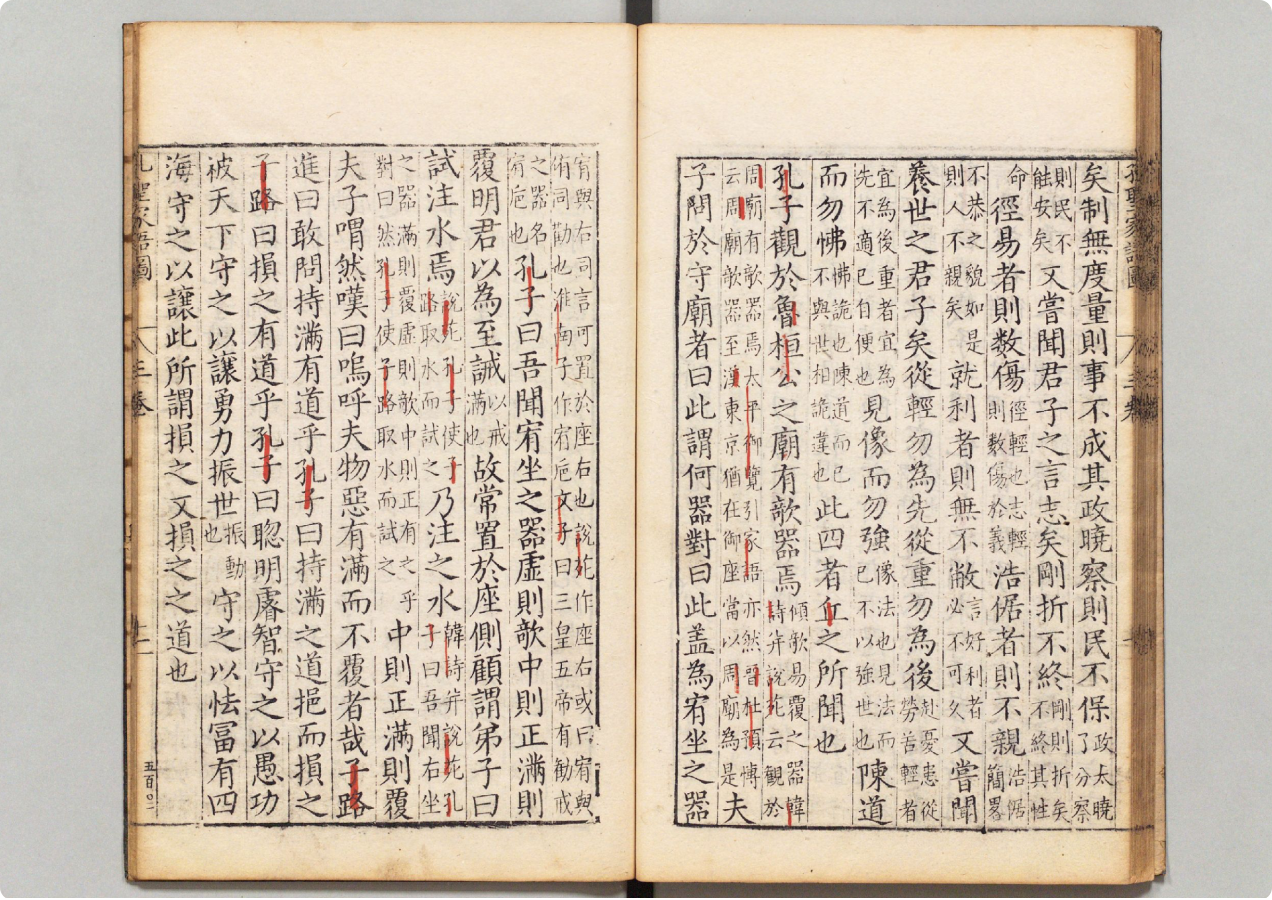 矣制無度量則事不成其政曉察則民不保政太曉了分察
則民不能安矣又嘗聞君子之言志矣剛折不終剛則折矣不終其性
命徑易者則数傷徑輕也志輕則數傷於義浩倨者則不親浩倨簡畧
不恭之貌如是則人不親矣就利者則無不敝言好利者必不可久又嘗聞
養世之君子矣從輕勿為先從重勿為後赴憂患從勞苦輕者
宜為後重者宜為先不適已自便也見像而勿強像法也見法而已不以強世也陳道
而勿怫怫詭也陳道而已不與世相詭違也此四者丘之所聞也
孔子觀於魯桓公之廟有欹器焉傾欹易覆之器韓詩并說苑云觀於
周廟有欹器焉太平御覽引家語亦然晋杜預傳云周廟欹器至漢東京猶在御座當以周廟為是夫
子問於守廟者曰此謂何器對曰此盖為宥坐之器
宥與右同言可置於座右也說苑作座右或曰宥與侑同勸也淮南子作宥巵文子曰三皇五帝有勸戒
之器名宥巵也孔子曰吾聞宥坐之器虛則欹中則正滿則
覆明君以為至誡以戒滿也故常置於座側顧謂弟子曰
試注水焉說苑孔子使子路取水而試之乃注之水韓詩并說苑孔子曰吾聞右坐
之器滿則覆虛則欹中則正有之乎對曰然孔子使子路取水而試之中則正滿則覆
夫子喟然嘆曰嗚呼夫物惡有滿而不覆者哉子路
進曰敢問持滿有道乎孔子曰持滿之道挹而損之
子路曰損之有道乎孔子曰聦明睿智守之以愚功
被天下守之以讓勇力振世振動也守之以怯冨有四
海守之以讓此所謂損之又損之之道也
孔聖家語圖 三卷
五百〇二